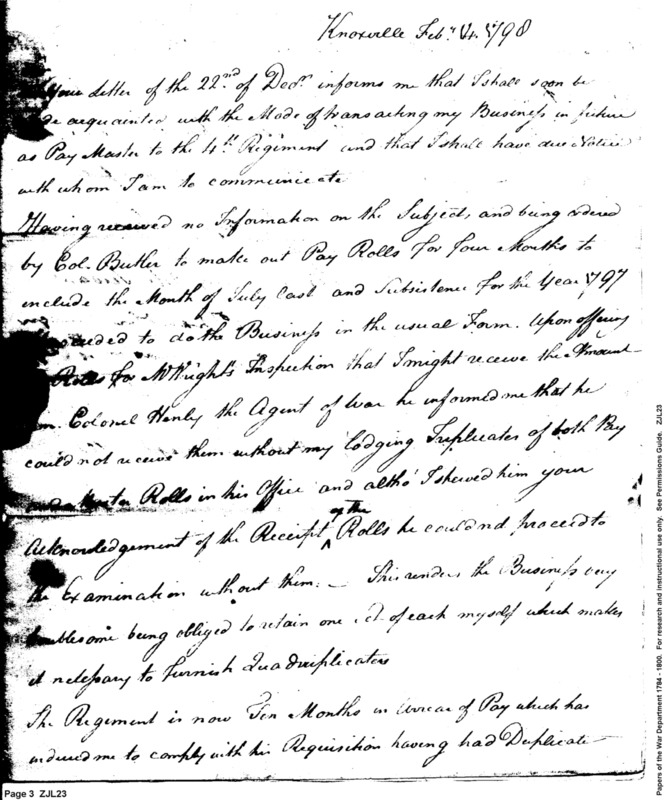 Knoxville Feby. 1798
Your Letter of the 22nd of Decr. informs me that I shall soon be
acquainted with the Mode of transacting my Business in future
as Pay Master to the 4th Regiment and that I shall have due Notice
with whom I am to communicate
Having received no Information on the Subject, and being ordered
by Col. Butler to make out Pay Rolls for four Months to
include the Month of July last and Subsistence for the Year 1797
to do the Business in the usual Form. Upon offering
Rolls for Mr Wright's Inspection that I might receive the Amount
Colonel Henly the Agent of War he informed me that he
could not receive them without my lodging Triplicates of both Pay
and Muster Rolls in his Office and altho' I shewed him your
of the
Acknowledgement of the Receipt ^ Rolls he could not proceed to
the Examination without them. — This renders the Business very
troublesome being obliged to retain one set of each myself which makes
it necessary to furnish Quadruplicates
The Regiment is now Ten Months in Arrear of Pay which has
induced me to comply with his Requisition having had Duplicate
Page 3 ZJL23
Papers of the War Department 1784 - 1800. For research and instructional use only. See Permissions Guide. ZJL23